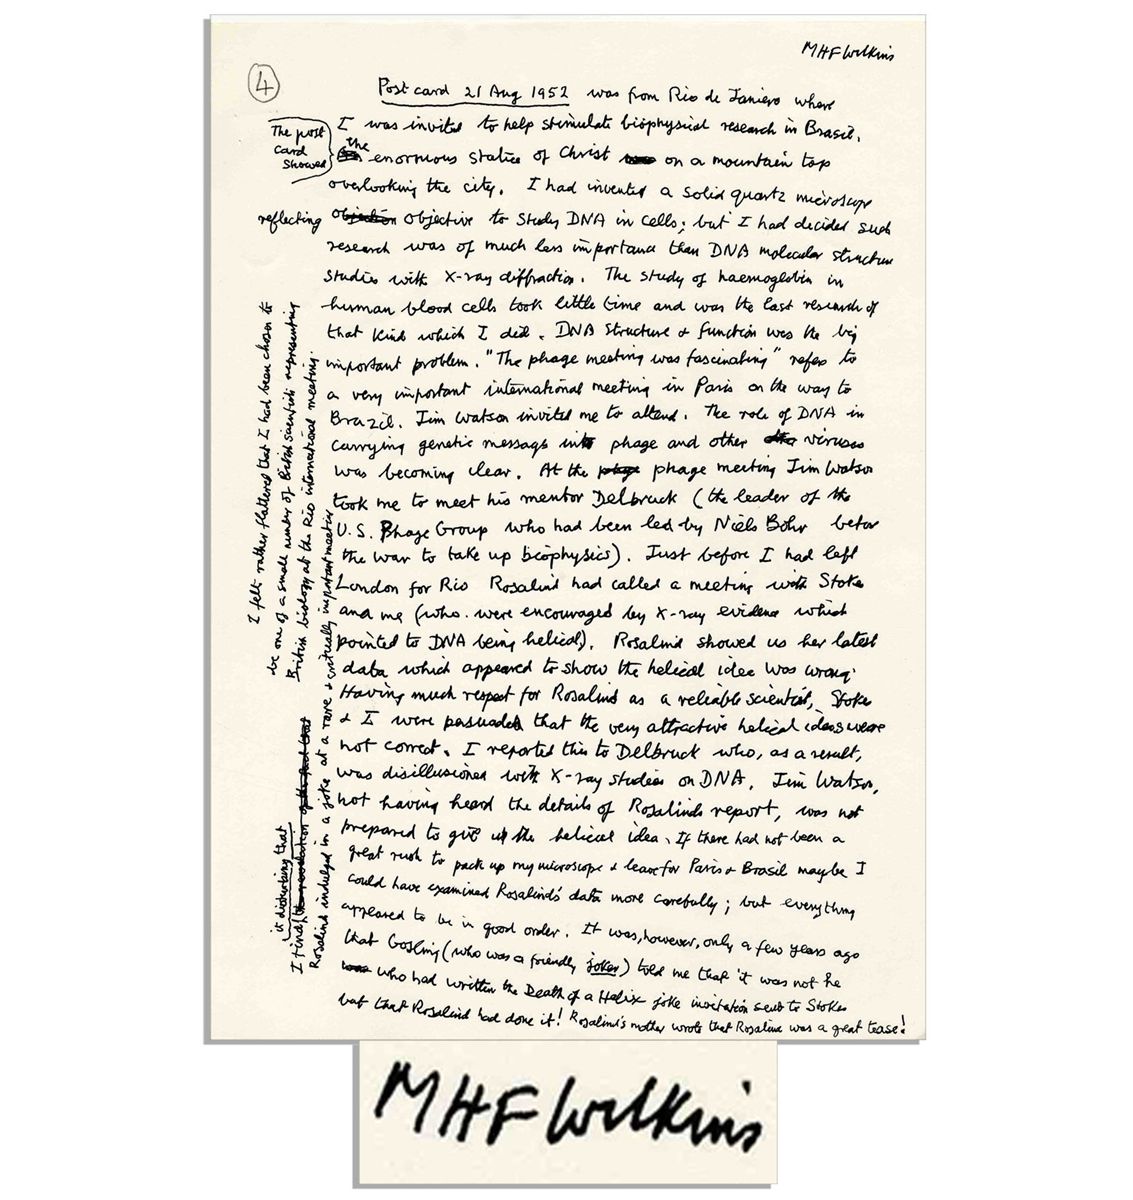 MHF Wilkins
4
Post card 21 Aug 1952 was from Rio de Janiero where
I was invited to help stimulate biophysical research in Brasil.
The post
card
showed
the enormous statue of Christ on a mountain top
overlooking the city. I had invented a solid quartz microscope
reflecting objective to study DNA in cells; but I had decided such
research was of much less importance than DNA molecular structure
studies with X-ray diffraction. The study of haemoglobin in
human blood cells took little time and was the last research of
that kind which I did. DNA structure & function was the big
important problem. "The phage meeting was fascinating" refers to
a very important international meeting in Paris on the way to
Brazil. Jim Watson invited me to attend. The role of DNA in
carrying genetic message into phage and other viruses
was becoming clear. At the phage meeting Jim Watson
took me to meet his mentor Delbruck (the leader of the
U.S. Phage Group who had been led by Niels Bohr before
the war to take up biophysics). Just before I had left
London for Rio Rosalind had called a meeting with Stokes
and me (who were encouraged by X-ray evidence which
pointed to DNA being helical). Rosalind showed us her latest
data which appeared to show the helical idea was wrong.
Having much respect for Rosalind as a reliable scientist, Stokes
& I were persuaded that the very attractive helical ideas were
not correct. I reported this to Delbruck who, as a result,
was disillusioned with X-ray studies on DNA. Jim Watson,
not having heard the details of Rosalinds report, was not
prepared to give up the helical idea. If there had not been a
great rush to pack up my microscope & leave for Paris & Brasil maybe I
could have examined Rosalind's data more carefully; but everything
appeared to be in good order. It was, however, only a few years ago
that Gosling (who was a friendly joker) told me that it was not he
who had written the Death of a Helix joke invitation sent to Stokes
but that Rosalind had done it! Rosalind's mother wrote that Rosalind was a great tease!
I felt rather flattered that I had been chosen to
be one of a small number of British scientists representing
British biology at the Rio international meeting.
I find it disturbing that
Rosalind indulged in a joke at a rare & critically important meeting
MHF Wilkins